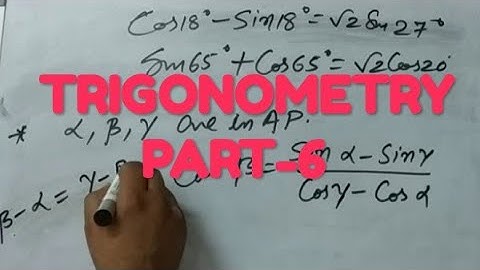 Cos18° - Sin18° = √2 Sin 27°
Sin65° + Cos65° = √2 Cos20°
TRIGONOMETRY
* α, β, γ are in AP.
PART-6
β - α = γ - β = Sin α - Sin γ / Cos γ - Cos α